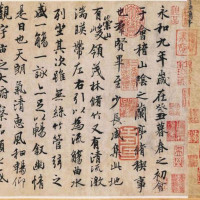 永和九年歲在癸丑暮春之初會
于會稽山陰之蘭亭脩稧事
也群賢畢至少長咸集此地
有崇山峻領茂林脩竹又有清流激
湍暎帶左右引以為流觴曲水
列坐其次雖無絲竹管弦之
盛一觴一詠亦足以暢敘幽情
是日也天朗氣清惠風和暢仰
觀宇宙之大俯察品類之盛